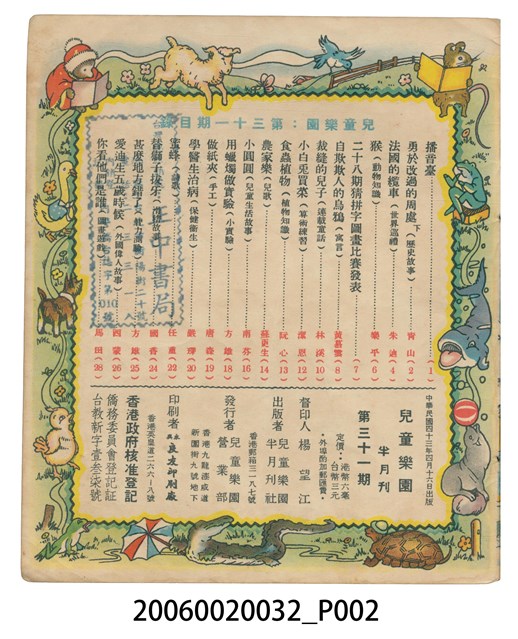 兒童樂園：第三十一期目錄
播音臺 (1)
勇於改過的周處 下 (歷史故事) 青山 (2)
法國的纜車 (世界巡禮) 朱迪 (4)
猴 (動物知識) 樂平 (6)
二十八期猜拼字圖畫比賽發表 (7)
自欺欺人的烏鴉 (寓言) (8)
裁縫的兒子 (連載童話) 林溪 (10)
小白兎買菜 (算術練習) 潔恩 (12)
食蟲植物 (植物知識) 阮心 (13)
農家樂 (兒歌) 蘇更生 (14)
小圓圓 (兒童生活故事) 雨芬 (16)
用蠟燭做實驗 (小實驗) 方雄 (18)
做紙夾 (手工) 唐森 (19)
學醫生治病 (保健衛生) (20)
蜜蜂 (詩歌) 任重 (22)
替獅子拔牙 國香 (24)
甚麼地方錯了 方雄 (25)
愛迪生五歲時候 (外國偉人故事) 西蒙 (26)
你看他們是誰 馬田 (28)
中書局
中華民國四十三年四月十六日出版
兒童樂園 半月刊
第三十一期
定價：港幣六毫
台幣三元
·外埠酌加郵匯費·
督印人 楊望江
出版者 兒童樂園半月刊社
香港郵箱三一八七號
發行者 兒童樂園營業部
香港九龍漆咸道
新圍街九號地下
印刷者 永上良友印刷廠
香港英皇道二六六一八號
香港政府核准登記
僑務委員會登記証
台教新字壹叁柒號
20060020032_P002